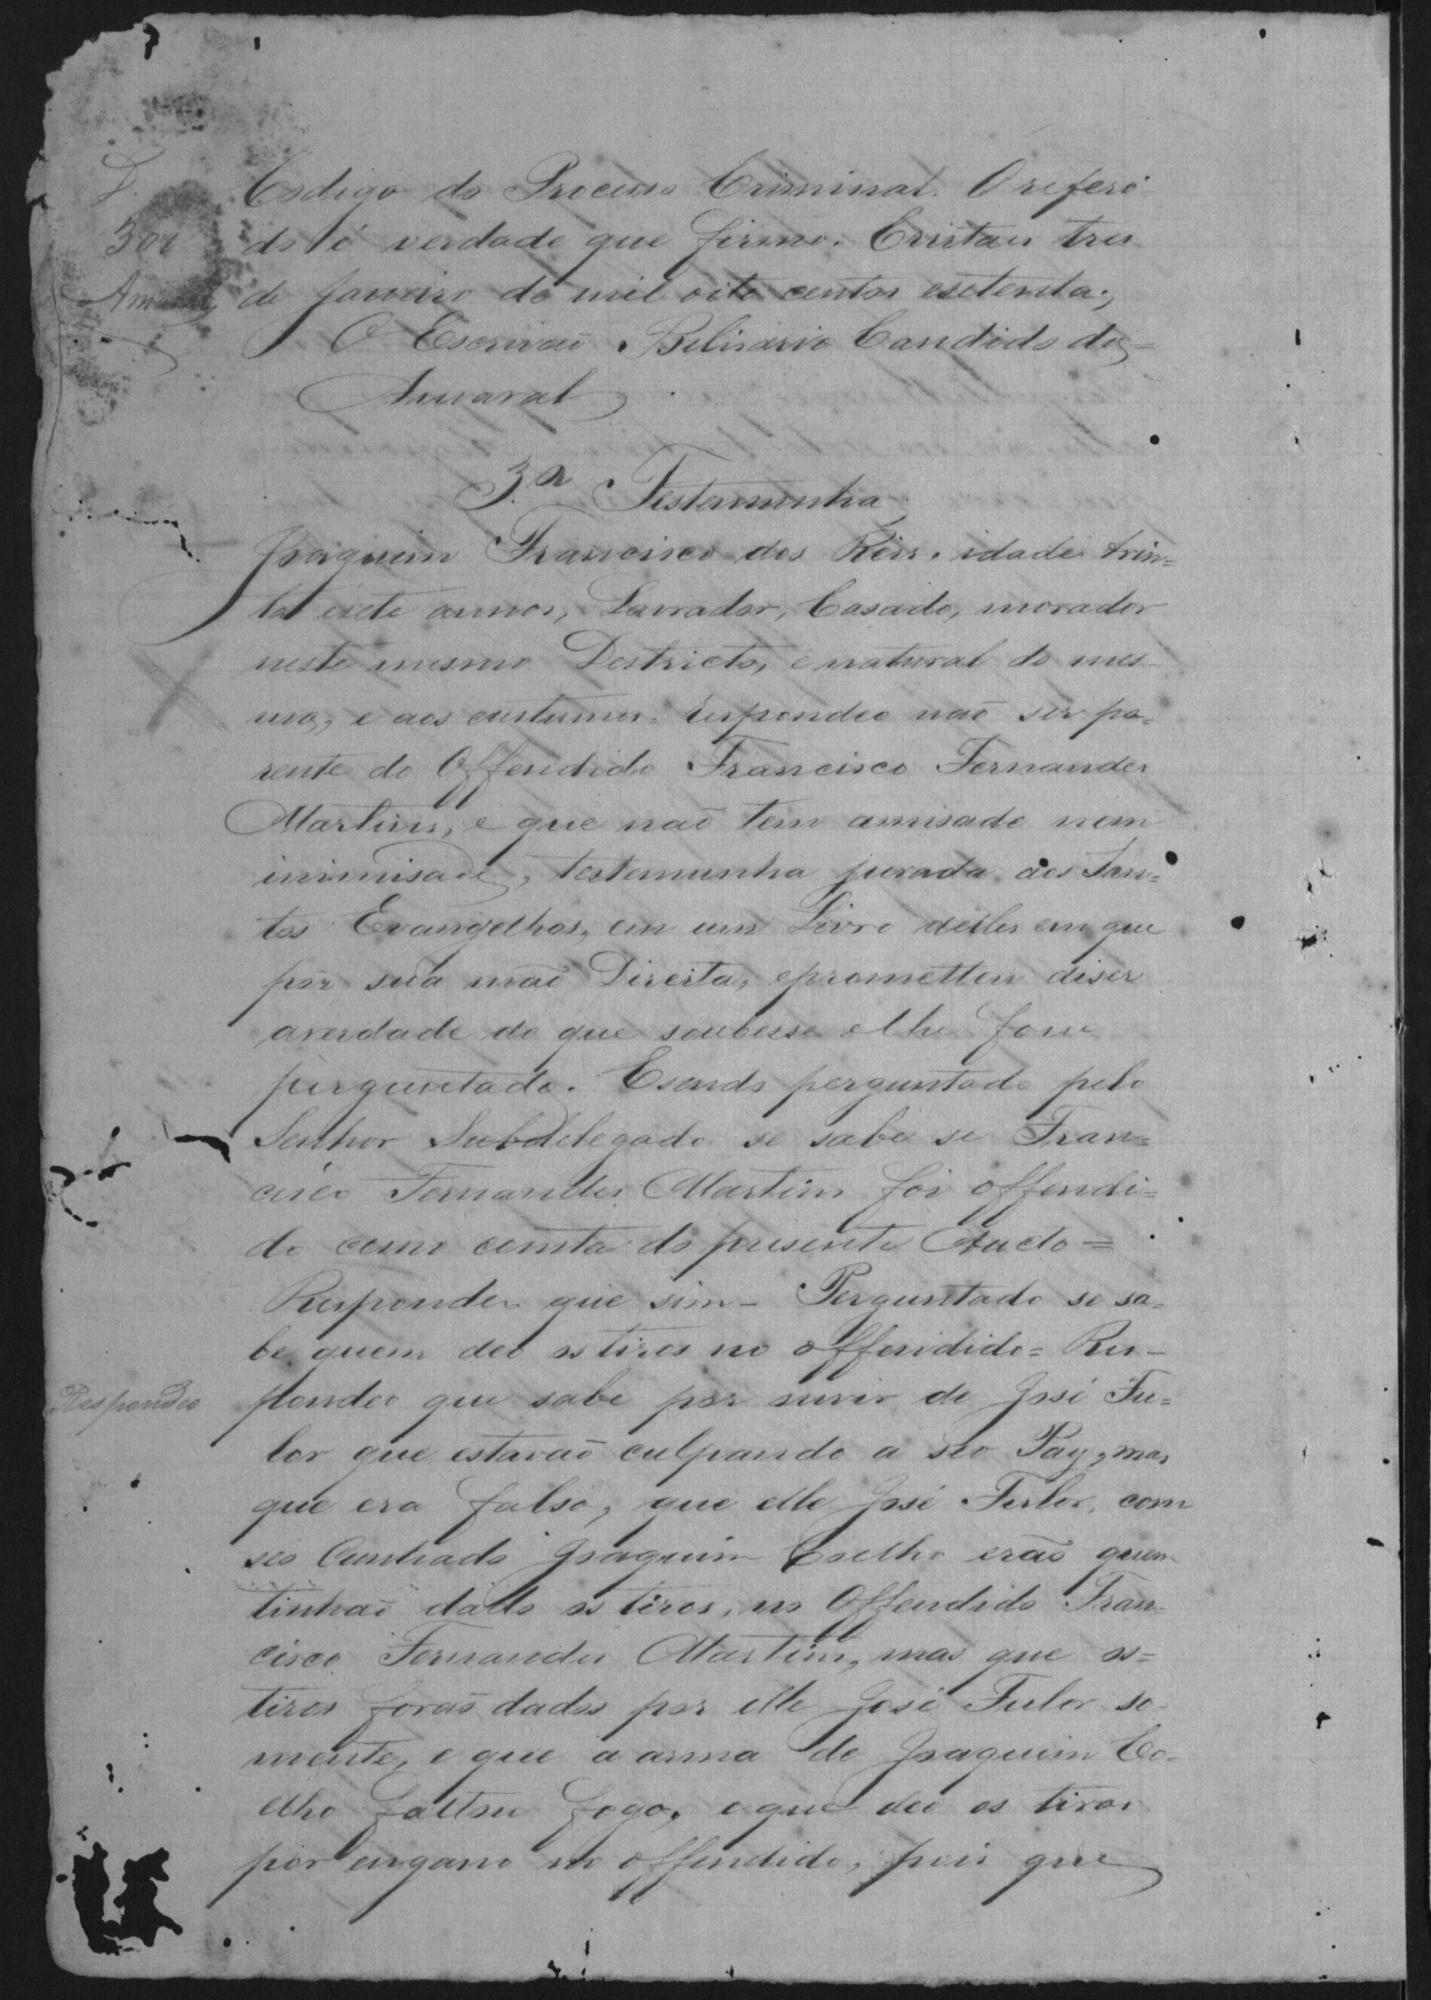 D.
300
Amaral
Codigo do Processo Criminal. O referi
do é verdade que firmo. Cristais tres
de Janeiro de mil oito centos esetenta;
O Escrivaõ Belisario Candido do =
Amaral
3.a Testemunha
Joaquim Francisco dos Reis, idade trin=
ta esete annos, Lavrador, Casado, morador
neste mesmo Destricto, e natural do mes-
mo, e aos custumes= Respondeo naõ ser pa=
rente do Offendido Francisco Fernandes
Martins, e que naõ tem amisade nem
inimisade, testemunha jurada aos San=
tos Evangelhos, em um Livro delles em que
pôz sua maõ Direita, eprometteu diser
averdade do que soubesse elhe fosse
perguntado. Esendo perguntado pelo
Senhor Subdelegado se sabe se Fran=
cisco Fernandes Martins foi offendi=
do como consta do presente Aucto=
Respondeu que sim- Perguntado se sa=
be quem deo os tiros no offendido= Res-
Respondeo
pondeo que sabe por ouvir de José Fu=
lor que estavaõ culpando a seo Pay, mas
que era falso, que elle José Fulor, com
seo Cunhado Joaquim Coelho eraõ quem
tinhaõ dado os tiros, no Offendido Fran-
cisco Fernandes Martins, mas que os=
tiros foraõ dados por elle José Fulor so-
mente, e que a arma de Joaquim Co-
elho faltou fogo, e que deo os tiros
por engano no offendido, pois que